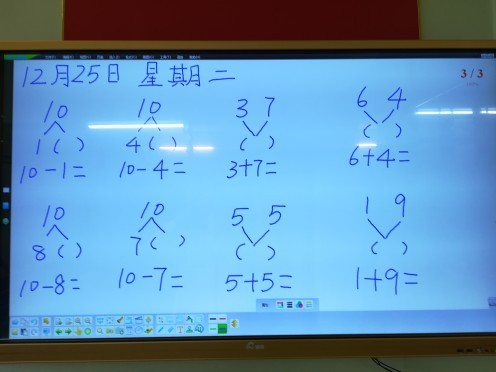 12月25日 星期二
3/3
10 10 3 7 6 4
1( ) 4( ) ( ) ( )
10-1= 10-4= 3+7= 6+4=
10 10 5 5 1 9
8( ) 7( ) ( ) ( )
10-8= 10-7= 5+5= 1+9=